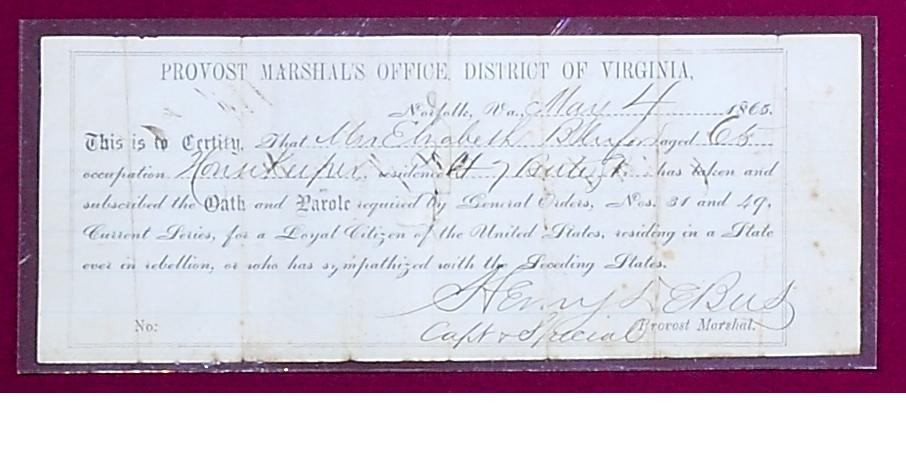 PROVOST MARSHAL'S OFFICE, DISTRICT OF VIRGINIA,
Norfolk, Va., May 4 1865.
This is to Certify, That Mrs Elizabeth aged 65
occupation House Keeper, residence At 7 has taken and
subscribed the Oath and Parole required by General Orders, Nos. 31 and 49,
Current Series, for a Loyal Citizen of the United States, residing in a State
ever in rebellion, or who has sympathized with the Seceding States.
Henry
No: Capt & Special Provost Marshal.